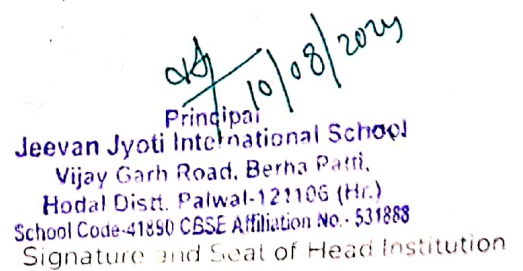 10/08/2024
Principal
Jeevan Jyoti International School
Vijay Garh Road, Berha Patti,
Hodal Distt. Palwal-121106 (Hr.)
School Code-41890 CBSE Affiliation No.- 531888
Signature and Seal of Head Institution